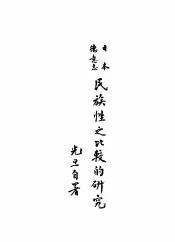 日本
德意志
民族性之比較的研究
光旦自署